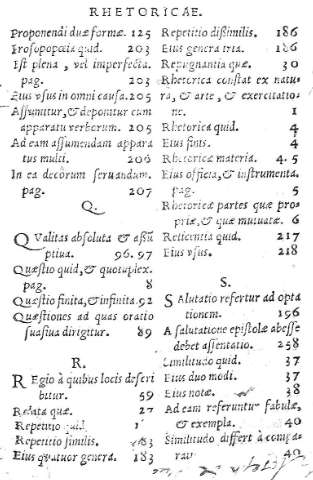 RHETORICAE.
Proponendi duæ formæ. 125
Prosopopœia quid. 203
Est plena, vel imperfecta.
pag. 203
Eius vsus in omni causa. 205
Assumitur, & deponitur cum
apparatu verborum. 205
Ad eam assumendam appara
tus multi. 206
In ea decôrum seruandum.
pag. 207
Q.
QValitas absoluta & assũ
ptiua. 96. 97
Quæstio quid, & quotuplex.
pag. 8
Quæstio finita, & infinita. 92
Quæstiones ad quas oratio
suasiua dirigitur. 89
R.
REgio à quibus locis descri
bitur. 59
Relata quæ. 27
Repetitio quid.
Repetitio similis. 183
Eius quatuor genera. 183
Repetitio dissimilis. 186
Eius genera tria. 186
Repugnantia quæ. 30
Rhetorica constat ex natu-
ra, & arte, & exercitatio-
ne. 1
Rhetorica quid. 4
Eius finis. 4
Rhetoricæ materia. 4. 5
Eius officia, & instrumenta.
pag. 5
Rhetoricæ partes quæ pro-
priæ, & quæ mutuatæ. 6
Reticentia quid. 217
Eius vsus. 218
S.
SAlutatio refertur ad opta
tionem. 196
A salutatione epistolæ abesse
debet assentatio. 258
Similitudo quid. 37
Eius duo modi. 37
Eius notæ. 38
Ad eam referuntur fabulæ,
& exempla. 40
Similitudo differt à compa
rat 40